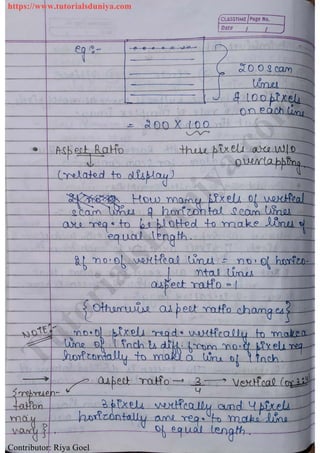 https://www.tutorialsduniya.com
CLASSMAT Page No.
Date / /
eg :-
200 scan
lines
& 100 pixels
on each line
= 200 X 100
• Aspect Ratio these pixels are w/o
overlapping
(related to display)
How many pixels of vertical
scan lines & horizontal scan lines
are req. to be plotted to make lines of
equal length.
If no. of vertical lines = no. of horizo-
ntal lines
aspect ratio = 1
{ Otherwise aspect ratio changes }
NOTE:- no. of pixels reqd. vertically to make a
line of 1 inch is diff. from no. of pixels req.
horizontally to make a line of 1 inch.
→ aspect ratio → 3/4 → vertical (or 3:4)
{represen-
tation 3 pixels vertically and 4 pixels
may horizontally are req. to make line
vary} of equal length.
Contributor: Riya Goel